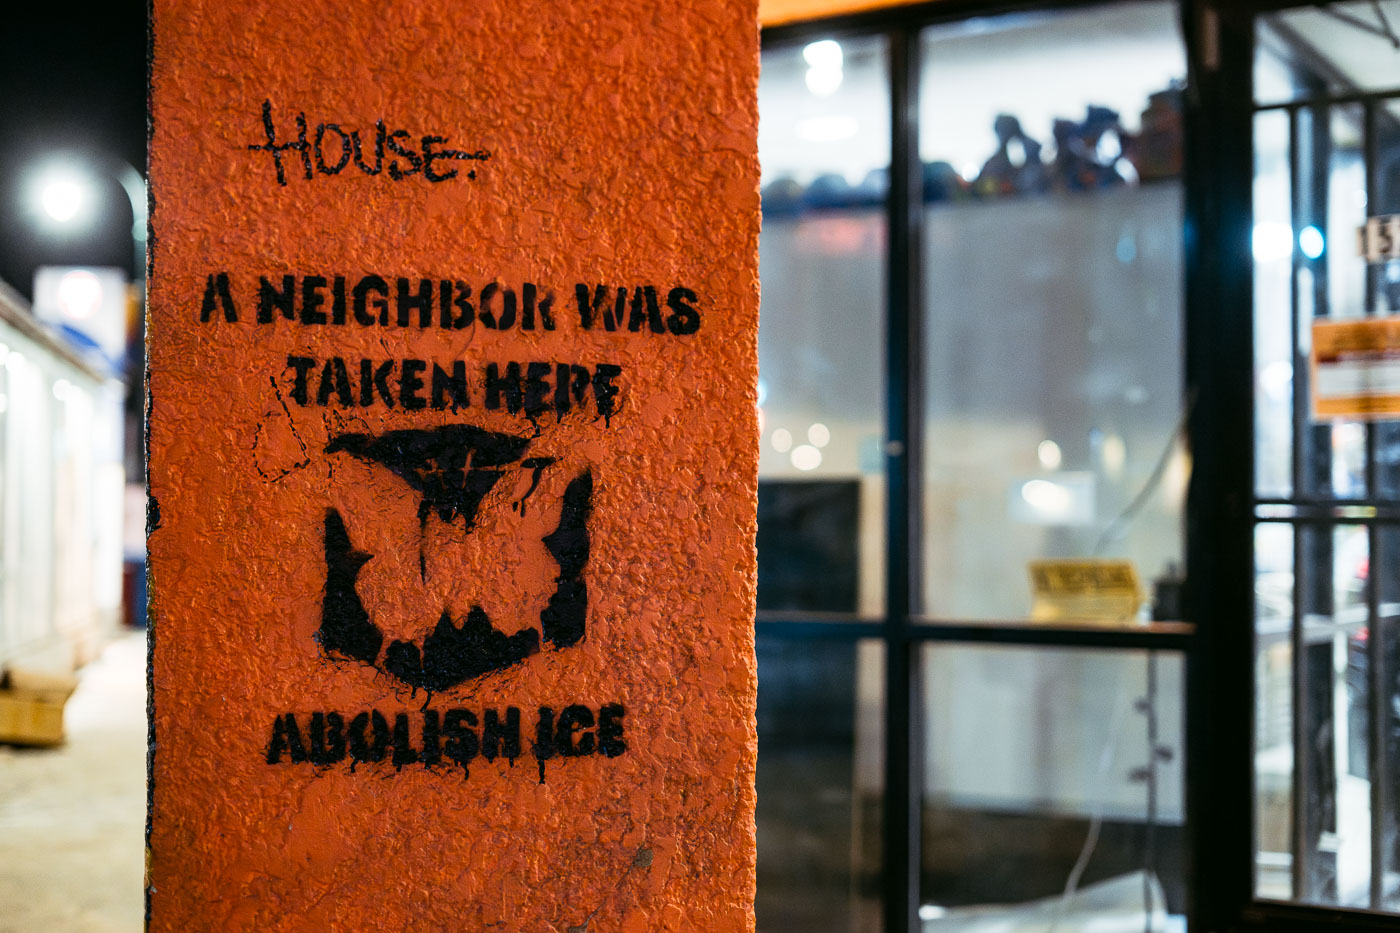 HOUSE.
A NEIGHBOR WAS
TAKEN HERE
ABOLISH ICE